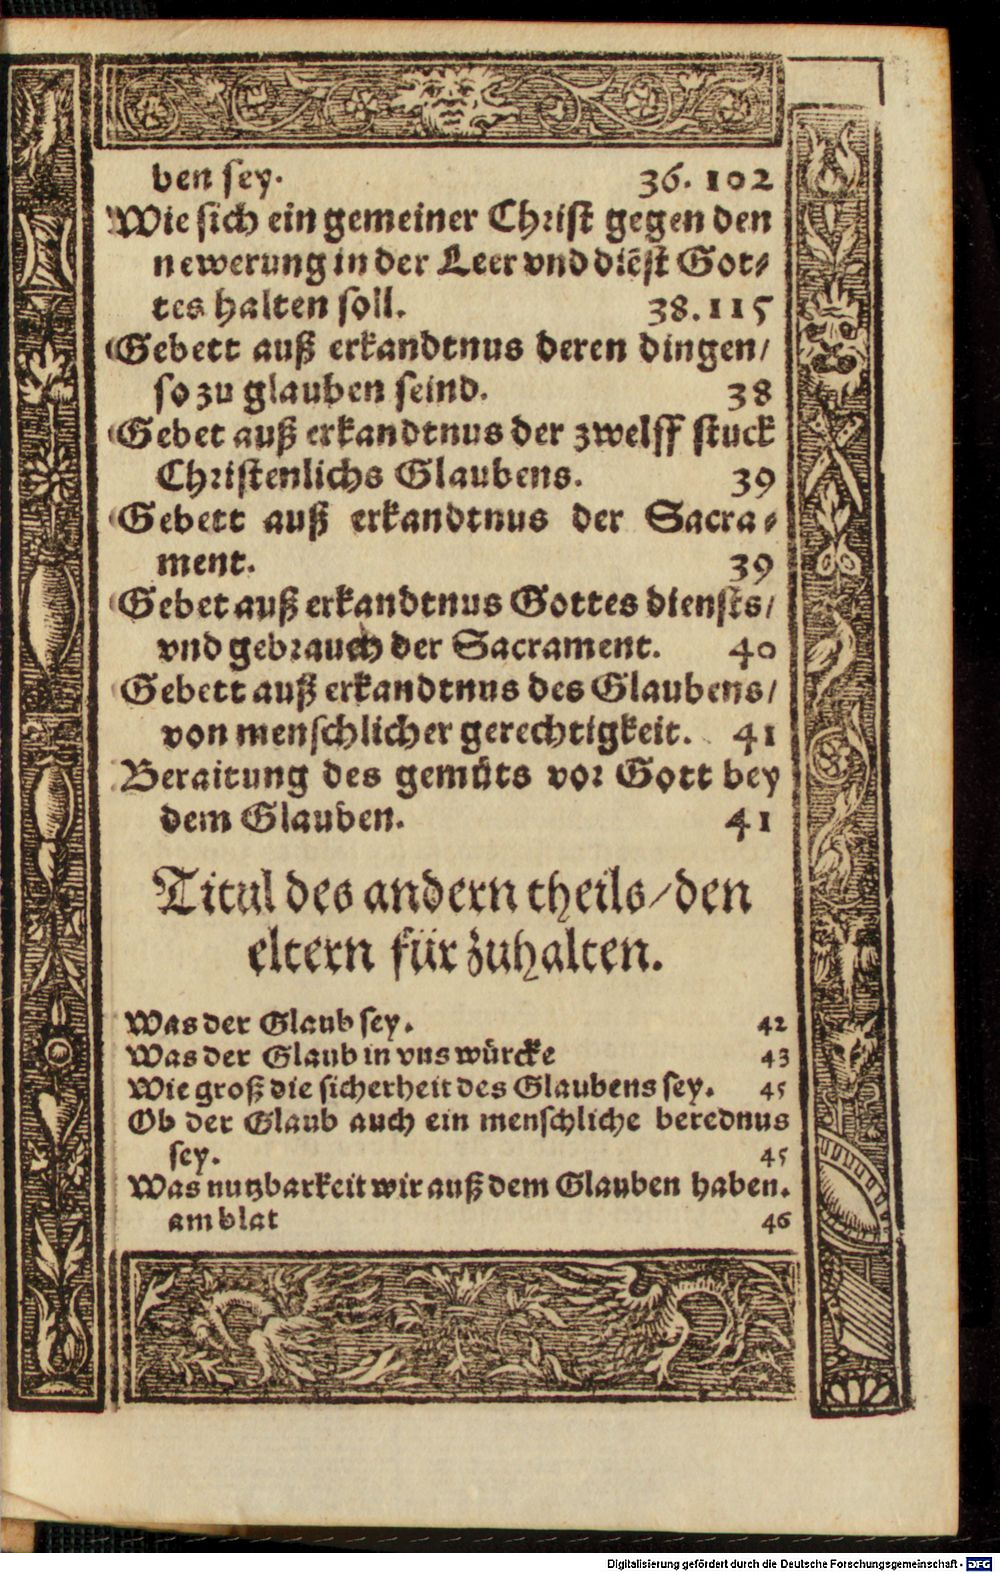 ben sey. 36. 102
Wie sich ein gemeiner Christ gegen den
newerung in der Leer vnd diēst Got⸗
tes halten soll. 38. 115
Gebett auß erkandtnus deren dingen/
so zu glauben seind. 38
Gebet auß erkandtnus der zwelff stuck
Christenlichs Glaubens. 39
Gebett auß erkandtnus der Sacra⸗
ment. 39
Gebet auß erkandtnus Gottes diensts/
vnd gebrauch der Sacrament. 40
Gebett auß erkandtnus des Glaubens/
von menschlicher gerechtigkeit. 41
Beraitung des gemüts vor Gott bey
dem Glauben. 41
Titul des andern theils/den
eltern für zuhalten.
Was der Glaub sey. 42
Was der Glaub in vns würcke 43
Wie groß die sicherheit des Glaubens sey. 45
Ob der Glaub auch ein menschliche berednus
sey. 45
Was nutzbarkeit wir auß dem Glauben haben.
am blat 46
Digitalisierung gefördert durch die Deutsche Forschungsgemeinschaft - DFG